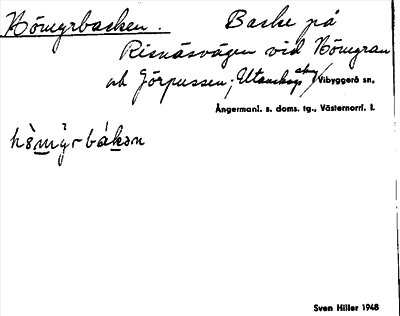 Hömyrbacken. Backe på
Risnäsvägen vid Hömyran
och Jörpussen; Utanskogs by, Vibyggerå sn,
Ångermanl. s. doms. tg., Västernorrl. l.
Sven Hiller 1948